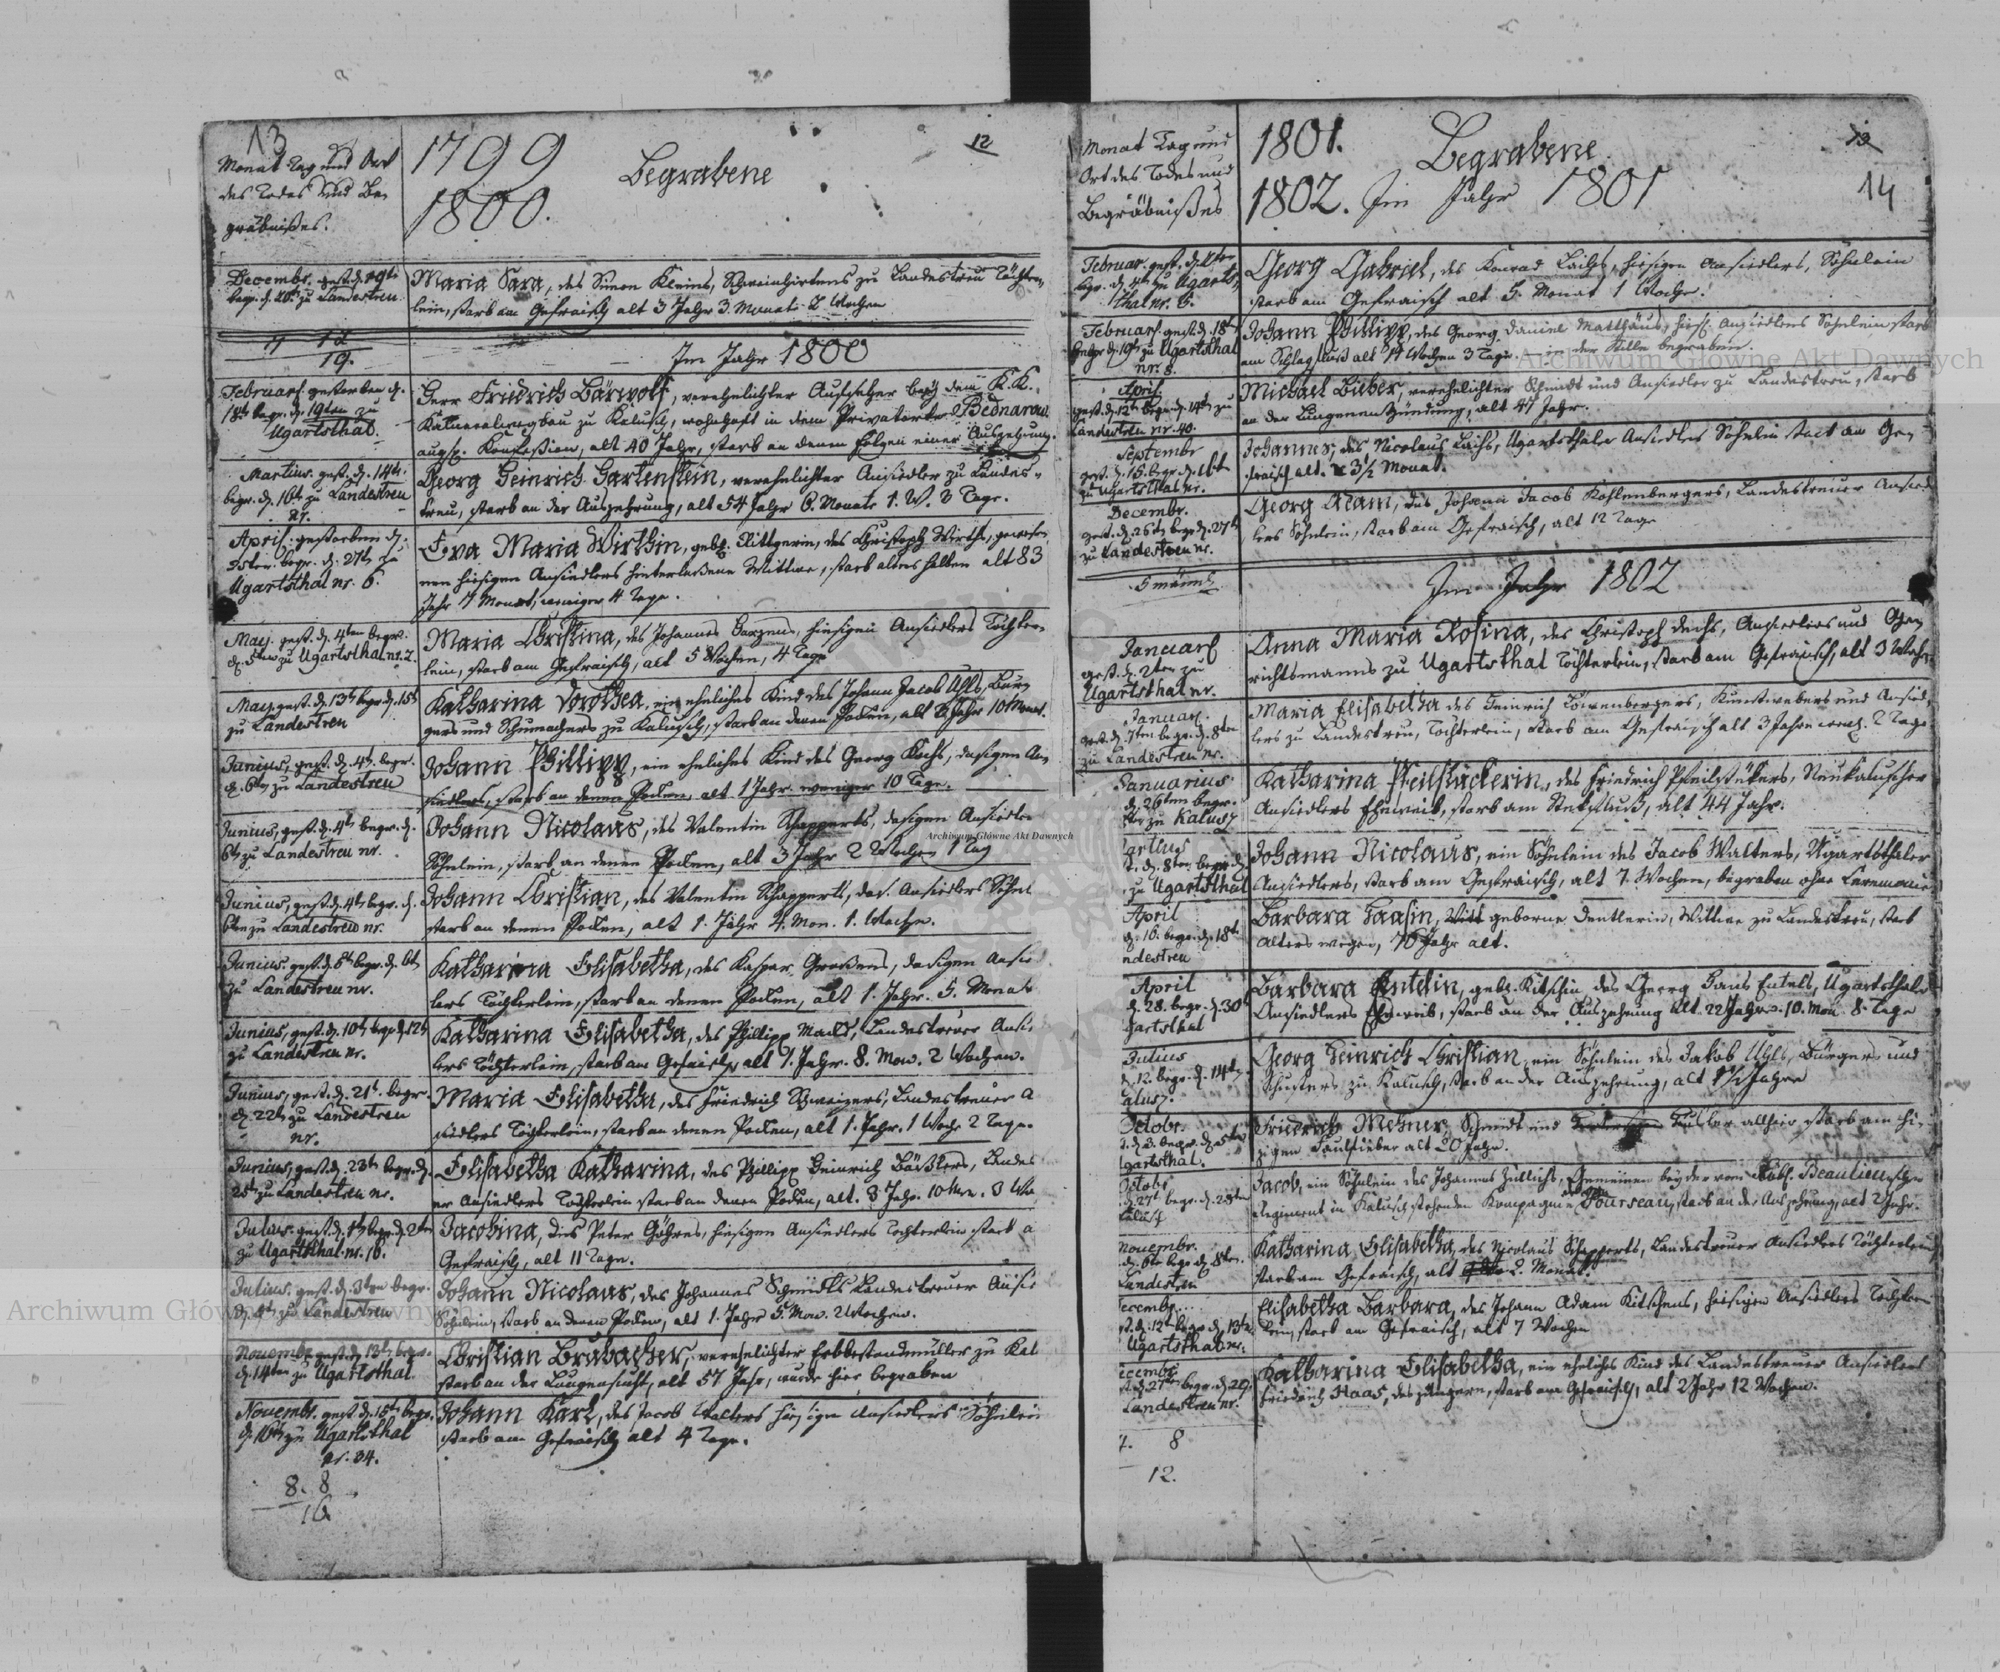 13
Monat Tag und Ort
des Todes und Be-
gräbnißes.
1799
1800.
Begrabene
12
Decembr. gest. d. 19t.
begr. d. 20. zu Landestreu
Maria Sara, des Simon Kleins, Schweinhirtens zu Landestreu Töchter-
lein, starb am Gefraisch alt 3 Jahr 3. Monat 2 Wochen
7 12
19.
Im Jahr 1800
Februar. gestorben d.
18t. begr. d. 19ten zu
Ugartsthal.
Herr Friedrich Bärwolf, verehelichter Aufseher bey dem K. K.
zu Kalusch, wohnhaft in dem Privatorte Bednarow
augsp. Confession, alt 40 Jahr, starb an denen Folgen einer Auszehrung.
Martius. gest. d. 14t.
begr. d. 16t. zu Landestreu
nr.
Georg Heinrich Gartenstein, verehelichter Ansiedler zu Landes-
treu, starb an der Auszehrung, alt 54 Jahr 6. Monate 1. W. 3 Tage.
April. gestorben d.
25ten. begr. d. 27t. zu
Ugartsthal nr. 6.
Eva Maria Wirthin, geb. Rittgerin, des Christoph Wirths, gewese-
nen hiesigen Ansiedlers hinterlaßene Wittwe, starb alters halben alt 83
Jahr 7 Monat, weniger 4 Tage.
May. gest. d. 4ten begr.
d. 5ten zu Ugartsthal nr. 2.
Maria Christina, des Johannes hiesigen Ansiedlers Töchter-
lein, starb am Gefraisch, alt 5 Wochen, 4 Tage
May. gest. d. 13t. begr. d. 15t.
zu Landestreu
Katharina Dorothea, ein eheliches Kind des Johann Jacob Uhls, Bür-
gers und Schumachers zu Kalusch, starb an denen Pocken, alt Jahr 10 Monat.
Junius, gest. d. 4t. begr.
d. 6ten zu Landestreu
Johann Phillipp, ein eheliches Kind des Georg Kochs, dasigen An-
siedlers, starb an denen Pocken, alt 1 Jahr. weniger 10 Tage.
Junius, gest. d. 4t. begr. d.
6t. zu Landestreu nr.
Johann Nicolaus, des Valentin Schapperts, dasigen Ansiedler
Söhnlein, starb an denen Pocken, alt 3 Jahr 2 Wochen 1 Tag
Junius, gest. d. 4t. begr. d.
6ten zu Landestreu nr.
Johann Christian, des Valentin Schapperts, das. Ansiedlers Söhnl.
starb an denen Pocken, alt 1. Jahr 4. Mon. 1. Woche.
Junius. gest. d. begr. d. 6t.
zu Landestreu nr.
Katharina Elisabetha, des Kaspar Großens, dasigen Ansied
lers Töchterlein, starb an denen Pocken, alt 1. Jahr. 5. Monate
Junius, gest. d. 10t. begr. d. 12t.
zu Landestreu nr.
Katharina Elisabetha, des Phillipp Landestreuer Ansi.
lers Töchterlein, starb am Gefraisch alt 1. Jahr. 8. Mon. 2 Wochen.
Junius, gest. d. 21t. begr.
d. 22t. zu Landestreu
nr.
Maria Elisabetha, des Friedrich Schweizers, Landestreuer A
siedlers Töchterlein, starb an denen Pocken, alt 1. Jahr. 1 Woch. 2 Tage.
Junius, gest. d. 23t. begr. d.
25t. zu Landestreu nr.
Elisabetha Katharina, des Phillipp Heinrich Landes
er Ansiedlers Töchterlein starb an denen Pocken, alt. 3 Jahr. 10 Mon. 3 Wo
Julius. gest. d. 1t. begr. d. 2ten
zu Ugartsthal nr. 16.
Jacobina, des Peter hiesigen Ansiedlers Tochterlein starb a
Gefraisch, alt 11 Tage.
Julius. gest. d. 3ten begr.
d. 4t. zu Landestreu
Johann Nicolaus, des Johannes Schmidts Landestreuer Ansie
Söhnlein, starb an denen Pocken, alt 1. Jahr 5. Mon. 2 Wochen.
Novembr. gest. d. 13t. begr.
d. 14ten zu Ugartsthal
Christian Brubacher, verehelichter Erbbestandmüller zu Kal
starb an der Lungensucht, alt 57 Jahr, wurde hier begraben
Novembr. gest. d. 15t. begr.
d. 16t. zu Ugartsthal
nr. 34.
Johann Karl, des Jacob Walters hiesigen Ansiedlers Söhnlein
starb am Gefraisch alt 4 Tage.
8. 8
16
Monat Tag und
Ort des Todes und
Begräbnißes
1801.
1802.
Begrabene
Im Jahr 1801
13
14
Februar. gest. d. 2ten
begr. d. 4t. zu Ugarts-
thal nr. 5.
Georg Gabriel, des Konrad hiesigen Ansiedlers, Söhnlein
starb am Gefraisch alt 5. Monat 1 Woche.
Februar. gest. d. 18t.
begr. d. 19t. zu Ugartsthal
nr. 8.
Johann Phillipp, des Georg Daniel Matthäus, hies. Ansiedlers Söhnlein starb
am Schlagfluß alt 14 Wochen 3 Tage. in der Stille begraben.
April.
gest. d. 12t. begr. d. 14t. zu
Landestreu nr. 40.
Michael Bieber, verehelichter Schmidt und Ansiedler zu Landestreu, starb
an der Lungenentzündung, alt 47 Jahr.
Septembr
gest. d. 15. begr. d. 16t
zu Ugartsthal nr.
Johannes, des Nicolaus Ugartsthaler Ansiedlers Söhnlein starb am Ge-
fraisch alt. 3½ Monat.
Decembr.
gest. d. 26t. begr. d. 27t.
zu Landestreu nr.
Georg Adam, des Johann Jacob Kohlenbergers, Landestreuer Ansied
lers Söhnlein, starb am Gefraisch, alt 12 Tage
5 männl.
Im Jahr 1802
Januar
gest. d. 2ten zu
Ugartsthal nr.
Anna Maria Rosina, des Christoph Ansiedlers und Ge-
richtsmanns zu Ugartsthal Töchterlein, starb am Gefraisch, alt 3 Wochen
Januar.
gest. d. 7ten begr. d. 8ten
zu Landestreu nr.
Maria Elisabetha des Heinrich Löwenbergers, Kunstwebers und Ansied-
lers zu Landestreu, Töchterlein, starb am Gefraisch alt 3 Jahr 2 Tage.
Januarius
d. 26ten begr.
zu Kalusz
Katharina Pfeilstückerin, des Friedrich Pfeilstükers, Neukaluscher
Ansiedlers Eheweib, starb am Stekfluß, alt 44 Jahr.
artius
t. d. 8ten begr. d.
zu Ugartsthal
Johann Nicolaus, ein Söhnlein des Jacob Walters, Ugartsthaler
Ansiedlers, starb am Gefraisch, alt 7. Wochen, begraben ohne Ceremonie
April
d. 16. begr. d. 18t.
ndestreu
Barbara Haasin, geborne Dentlerin, Wittwe zu Landestreu, starb
Alters wegen, 76 Jahr alt.
April
d. 28. begr. d. 30t
gartsthal
Barbara Entelin, geb. Kitschin des Georg Hans Entels, Ugartsthaler
Ansiedlers Eheweib, starb an der Auszehrung alt. 22 Jahr. 10. Mon. 8. Tage
Julius
d. 12. begr. d. 14t.
alusz.
Georg Heinrich Christian, ein Söhnlein des Jakob Uhls, Bürgers und
Schusters zu Kalusch, starb an der Auszehrung, alt 1½ Jahre
Octobr.
t. d. 3. begr. d. 5t.
gartsthal.
Friedrich Meßner Schmidt und allhier starb am hi-
zigen Faulfieber alt 20 Jahr.
Octobr
d. 27t. begr. d. 28ten
Kalusch
Jacob, ein Söhnlein des Johannes Zillichs, Gemeinen bey der vom Löbl. Beaulieuschen
Regiment in Kalusch stehenden Kompagnie Pourscau, starb an der Auszehrung, alt 2 Jahr.
Novembr.
d. 6ten begr. d. 8ten.
Landestreu
Katharina Elisabetha, des Nicolaus Schapperts, Landestreuer Ansiedlers Töchterlein
starb am Gefraisch, alt 2. Monat.
ecembr.
st. d. 12t. begr. d. 13t.
Ugartsthal nr.
Elisabetha Barbara, des Johann Adam Kitschens, hiesigen Ansiedlers Töchter-
lein, starb am Gefraisch, alt 7 Wochen
ecembr
st. d. 27t. begr. d. 29.
Landestreu nr.
Katharina Elisabetha, ein eheliches Kind des Landestreuer Ansiedlers
Friedrich Haas, des jüngern, starb am Gefraisch, alt 2 Jahr 12 Wochen.
7. 8
12.
Archiwum Główne Akt Dawnych
Archiwum Główne Akt Dawnych
Archiwum Główne Akt Dawnych